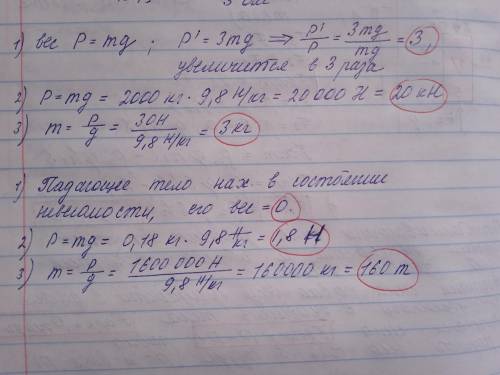 1) вес P = mg ; P' = 3mg ⟹ P'/P = 3mg/mg = 3,
увеличится в 3 раза
2) P = mg = 2000 кг · 9,8 Н/кг = 20 000 Н = 20 кН
3) m = P/g = 30Н/9,8 Н/кг = 3 кг
1) Падающее тело нах. в состоянии
невесомости, его вес = 0.
2) P = mg = 0,18 кг · 9,8 Н/кг = 1,8 Н
3) m = P/g = 1600 000 Н/9,8 Н/кг = 160000 кг = 160 т